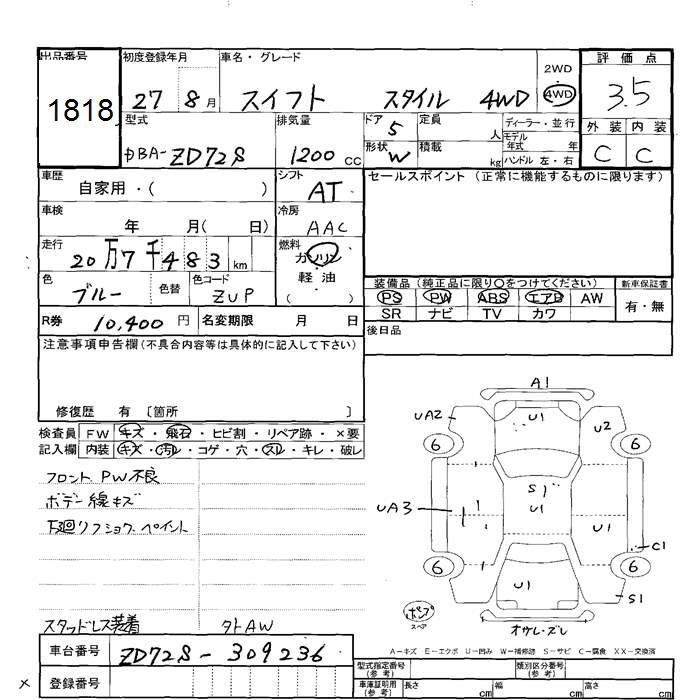 出品番号 初度登録年月 車名・グレード 2WD 評価点
1818 27 8月 スイフト スタイル 4WD 4WD 3.5
型式 排気量 ドア 5 定員 人 ディーラー・並行 外装 内装
DBA-ZD72S 1200 cc 形状 W 積載 kg モデル年式 年 ハンドル 左・右 C C
車歴 自家用・( ) シフト AT セールスポイント (正常に機能するものに限ります)
車検 年 月( 日) 冷房 AAC
走行 20万7千483 km 燃料 ガソリン
軽油
( )
色 ブルー 色替 色コード ZUP
装備品 (純正品に限り○をつけてください) 新車保証書
PS PW ABS エアB AW 有・無
SR ナビ TV カワ
R券 10,400円 名変期限 月 日 後日品
注意事項申告欄(不具合内容等は具体的に記入して下さい)
修復歴 有 〔箇所 〕
検査員 FW キズ・飛石・ヒビ割・リペア跡・×要
記入欄 内装 キズ・汚れ・コゲ・穴・スレ・キレ・破レ
フロント PW不良
ボデー線キズ
下廻リフショク、ペイント
スタッドレス装着 タトAW
A1
UA2 U1 U2
6 6
S1
UA3 U1 U1
C1
6 6
U1 S1
ポンプ
スペア
オサレ・ズレ
A-キズ E-エクボ U-凹み W-補修跡 S-サビ C-腐食 XX-交換済
車台番号 ZD72S-309236
× 登録番号
型式指定番号(参考) 類別区分番号(参考)
車庫証明用(参考) 長さ cm 幅 cm 高さ cm